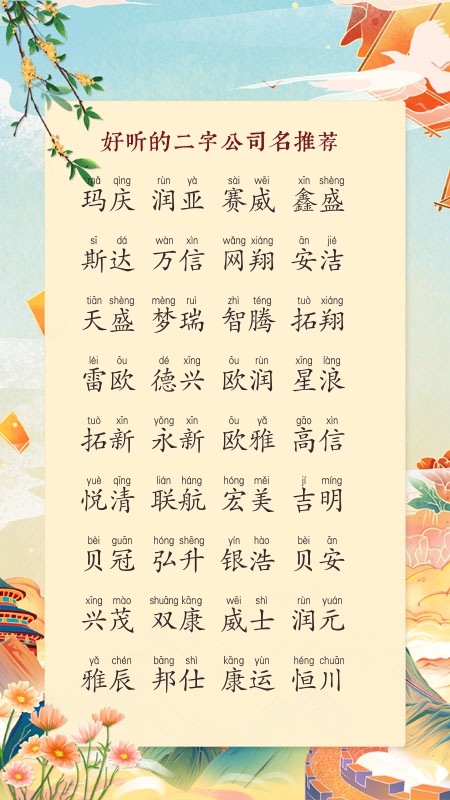 好听的二字公司名推荐
mǎ qìng rùn yà sài wēi xīn shèng
玛庆 润亚 赛威 鑫盛
sī dá wàn xìn wǎng xiáng ān jié
斯达 万信 网翔 安洁
tiān shèng mèng ruì zhì téng tuò xiáng
天盛 梦瑞 智腾 拓翔
léi ōu dé xīng ōu rùn xīng làng
雷欧 德兴 欧润 星浪
tuò xīn yǒng xīn ōu yǎ gāo xìn
拓新 永新 欧雅 高信
yuè qīng lián háng hóng měi jí míng
悦清 联航 宏美 吉明
bèi guān hóng shēng yín hào bèi ān
贝冠 弘升 银浩 贝安
xīng mào shuāng kāng wēi shì rùn yuán
兴茂 双康 威士 润元
yǎ chén bāng shì kāng yùn héng chuān
雅辰 邦仕 康运 恒川